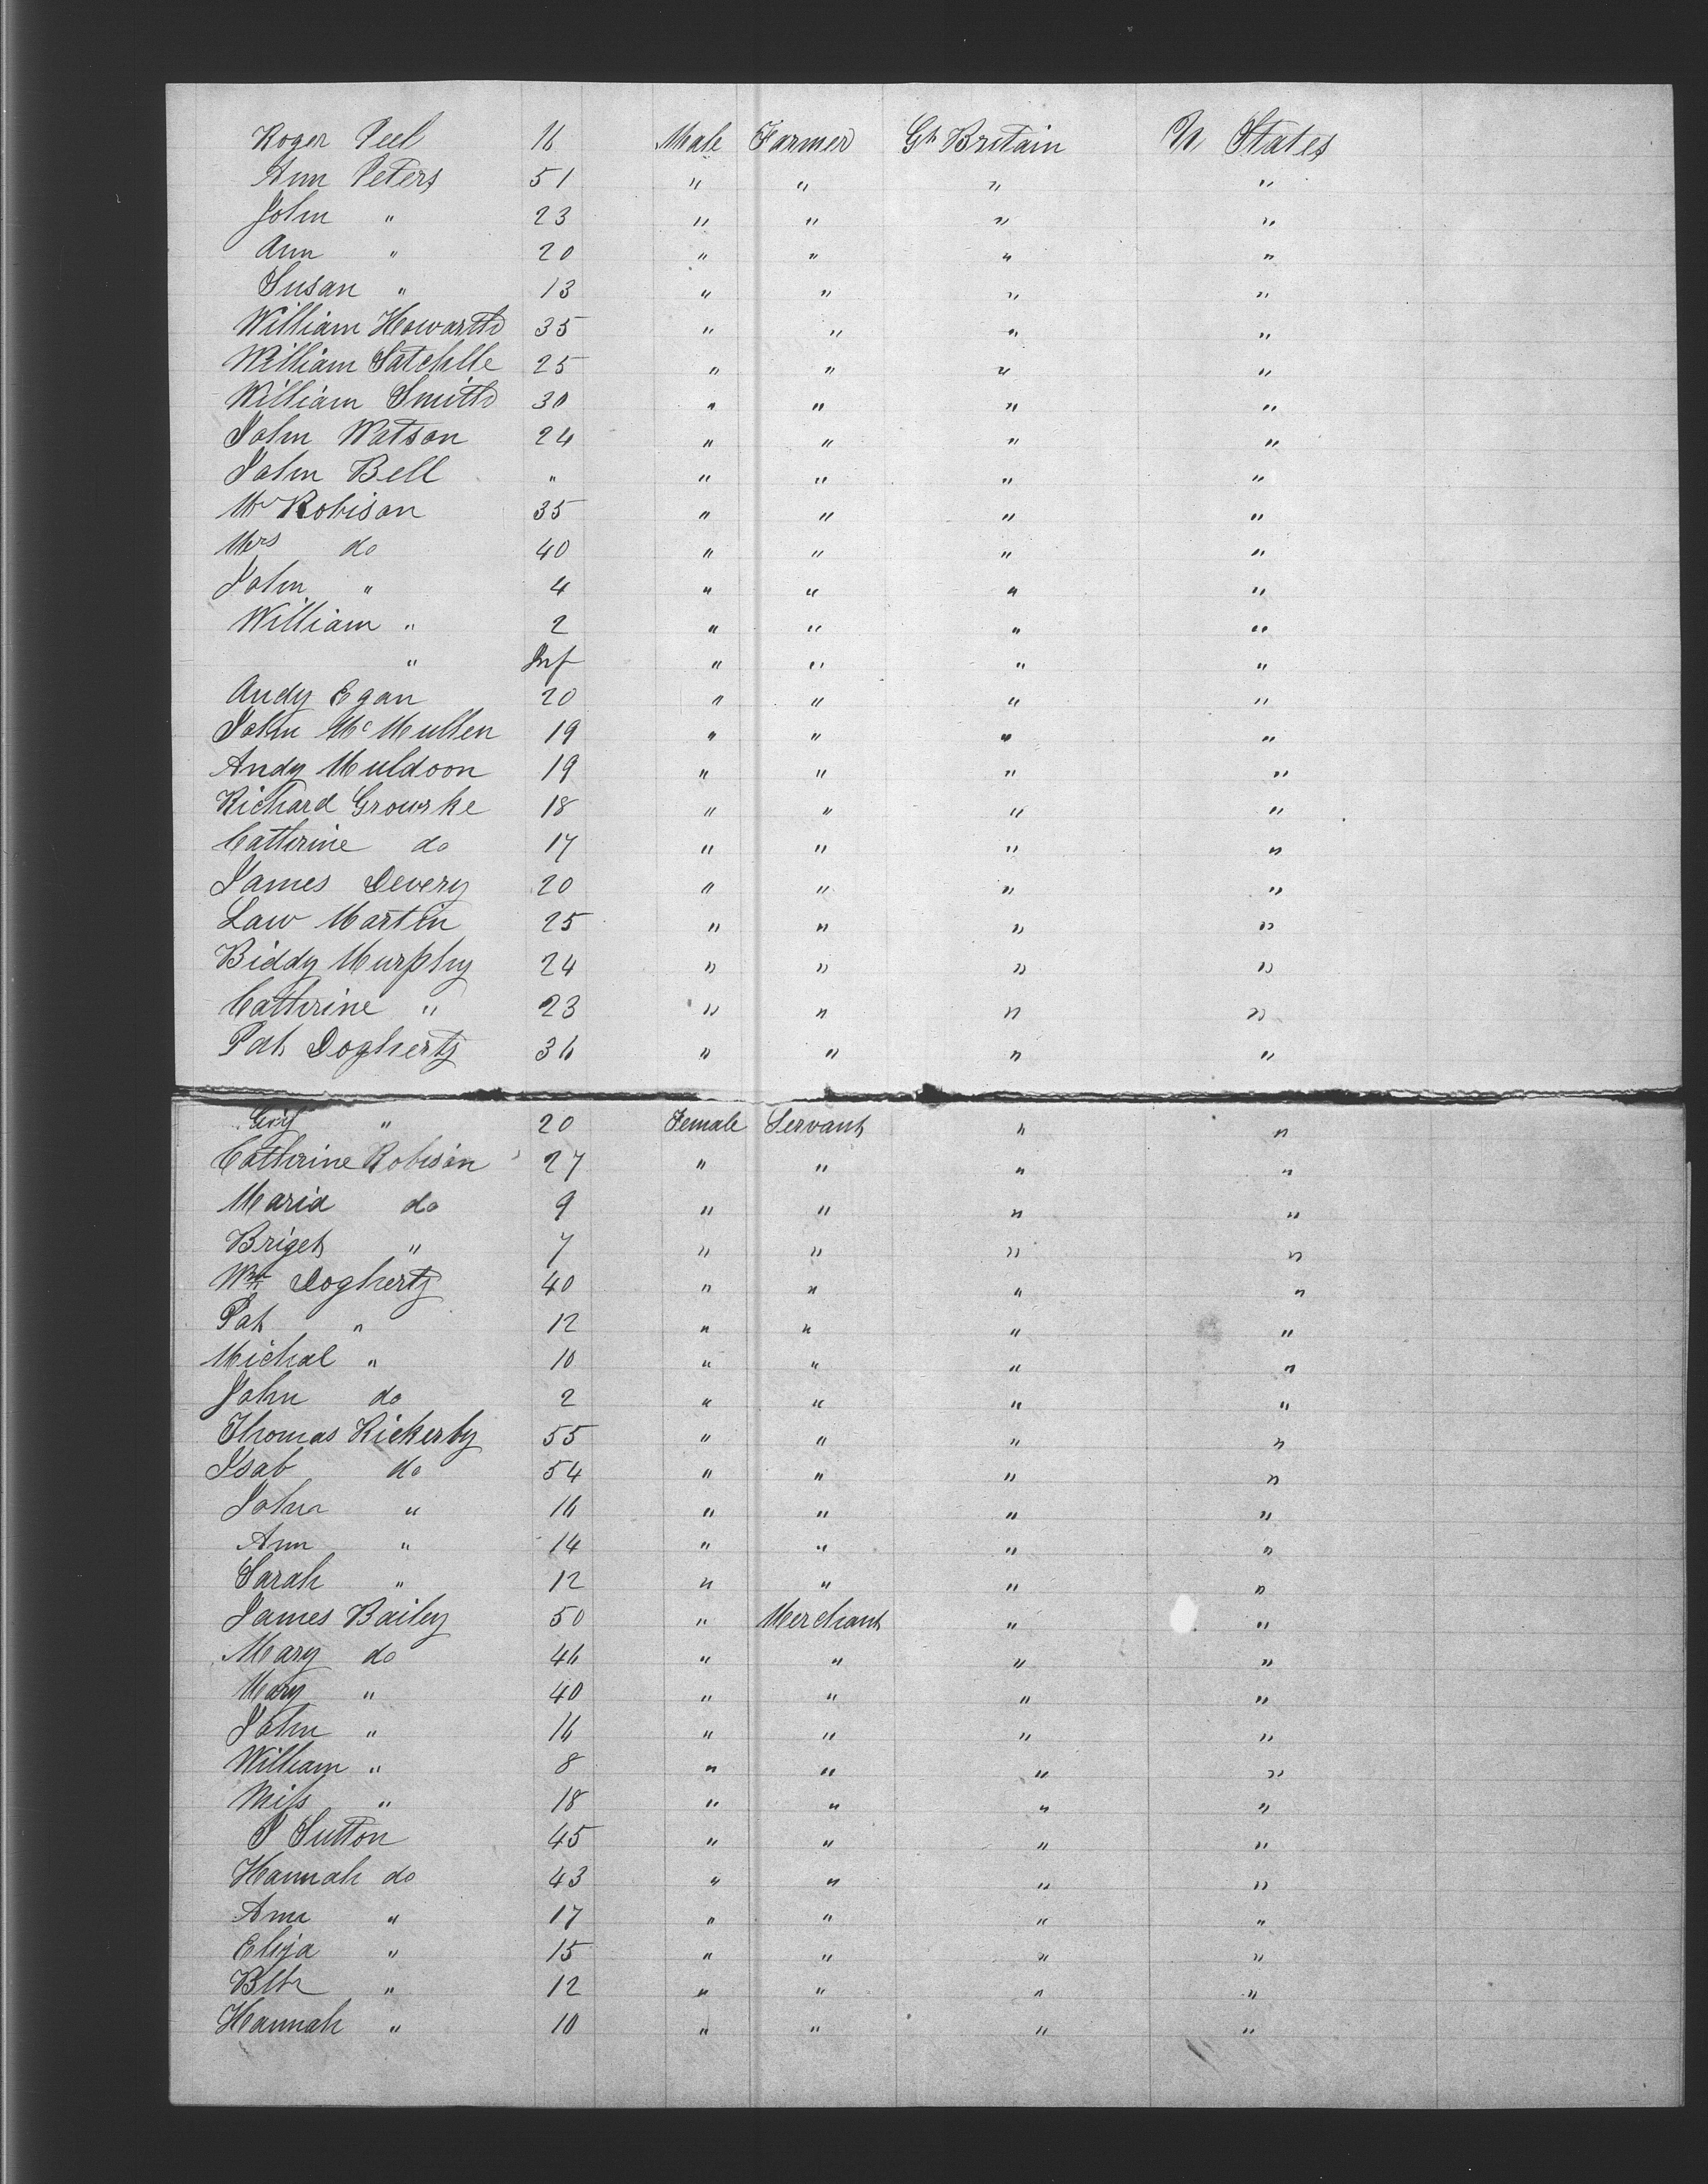 Roger Peel 16 Male Farmer Gt Britain U States
Ann Peters 51 " " " "
John " 23 " " " "
Ann " 20 " " " "
Susan " 13 " " " "
William Howarth 35 " " " "
William Satchlle 25 " " " "
William Smith 30 " " " "
John Watson 24 " " " "
John Bell " " " " "
Mr Robison 35 " " " "
Mrs do 40 " " " "
John " 4 " " " "
William " 2 " " " "
" Inf " " " "
Andy Egan 20 " " " "
John McMullen 19 " " " "
Andy Muldoon 19 " " " "
Richard Grourke 18 " " " "
Catherine do 17 " " " "
James Devery 20 " " " "
Law Martin 25 " " " "
Biddy Murphy 24 " " " "
Catherine " 23 " " " "
Pat Dogherty 36 " " " "
" 20 Female Servant " "
Catherine Robison 27 " " " "
Maria do 9 " " " "
Briget " 7 " " " "
Wm Dogherty 40 " " " "
Pat " 12 " " " "
Michal " 10 " " " "
John do 2 " " " "
Thomas Rickerby 55 " " " "
Isab do 54 " " " "
John " 16 " " " "
Ann " 14 " " " "
Sarah " 12 " " " "
James Bailey 50 " Merchant " "
Mary do 46 " " " "
Mary " 40 " " " "
John " 16 " " " "
William " 8 " " " "
Miss " 18 " " " "
P Sutton 45 " " " "
Hannah do 43 " " " "
Ann " 17 " " " "
Eliza " 15 " " " "
" 12 " " " "
Hannah " 10 " " " "